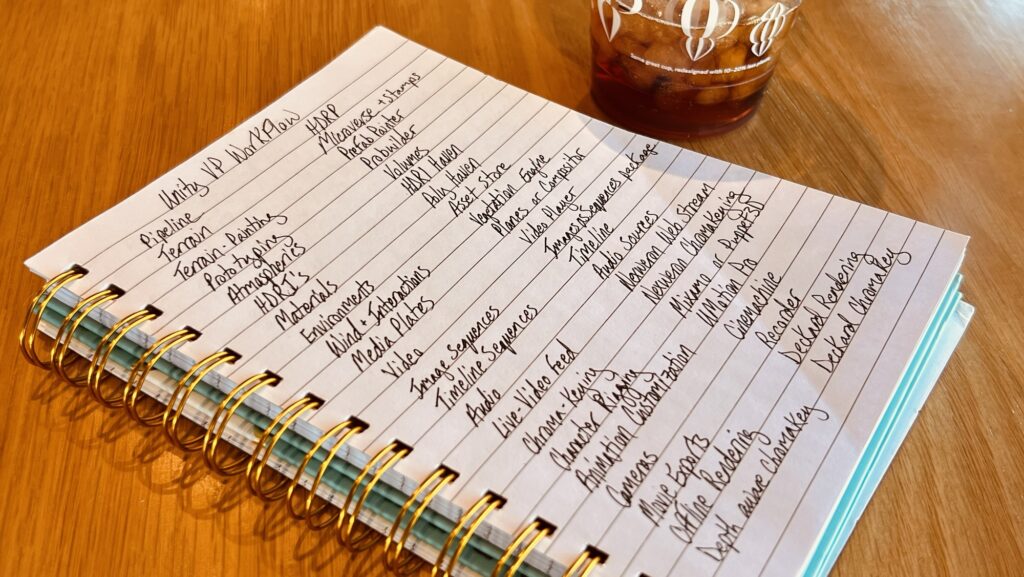 Unity VP Workflow
Pipeline HDRP
Terrain Microverse + stamps
Terrain-Painting PreFab Painter
Prototyping Probuilder
Atmospherics Volumes
HDRI's HDRI Haven
Materials Ally Haven
Environments Asset Store
Wind + Interactions Vegetation Engine
Media Plates Planes or Compositor
Video Video Player
Image Sequences Images Sequences package
Timeline Sequences Timeline
Audio Audio Sources
Live-Video Feed Stream
Chroma-Keying ChromaKeying
Character Rigging Mixamo or Puppet3D
Animation Customization UMotion Pro
Cameras Cinemachine
Movie Exports Recorder
Offline Rendering Deckard Rendering
Depth aware ChromaKey Deckard ChromaKey
same great cup, redesigned with